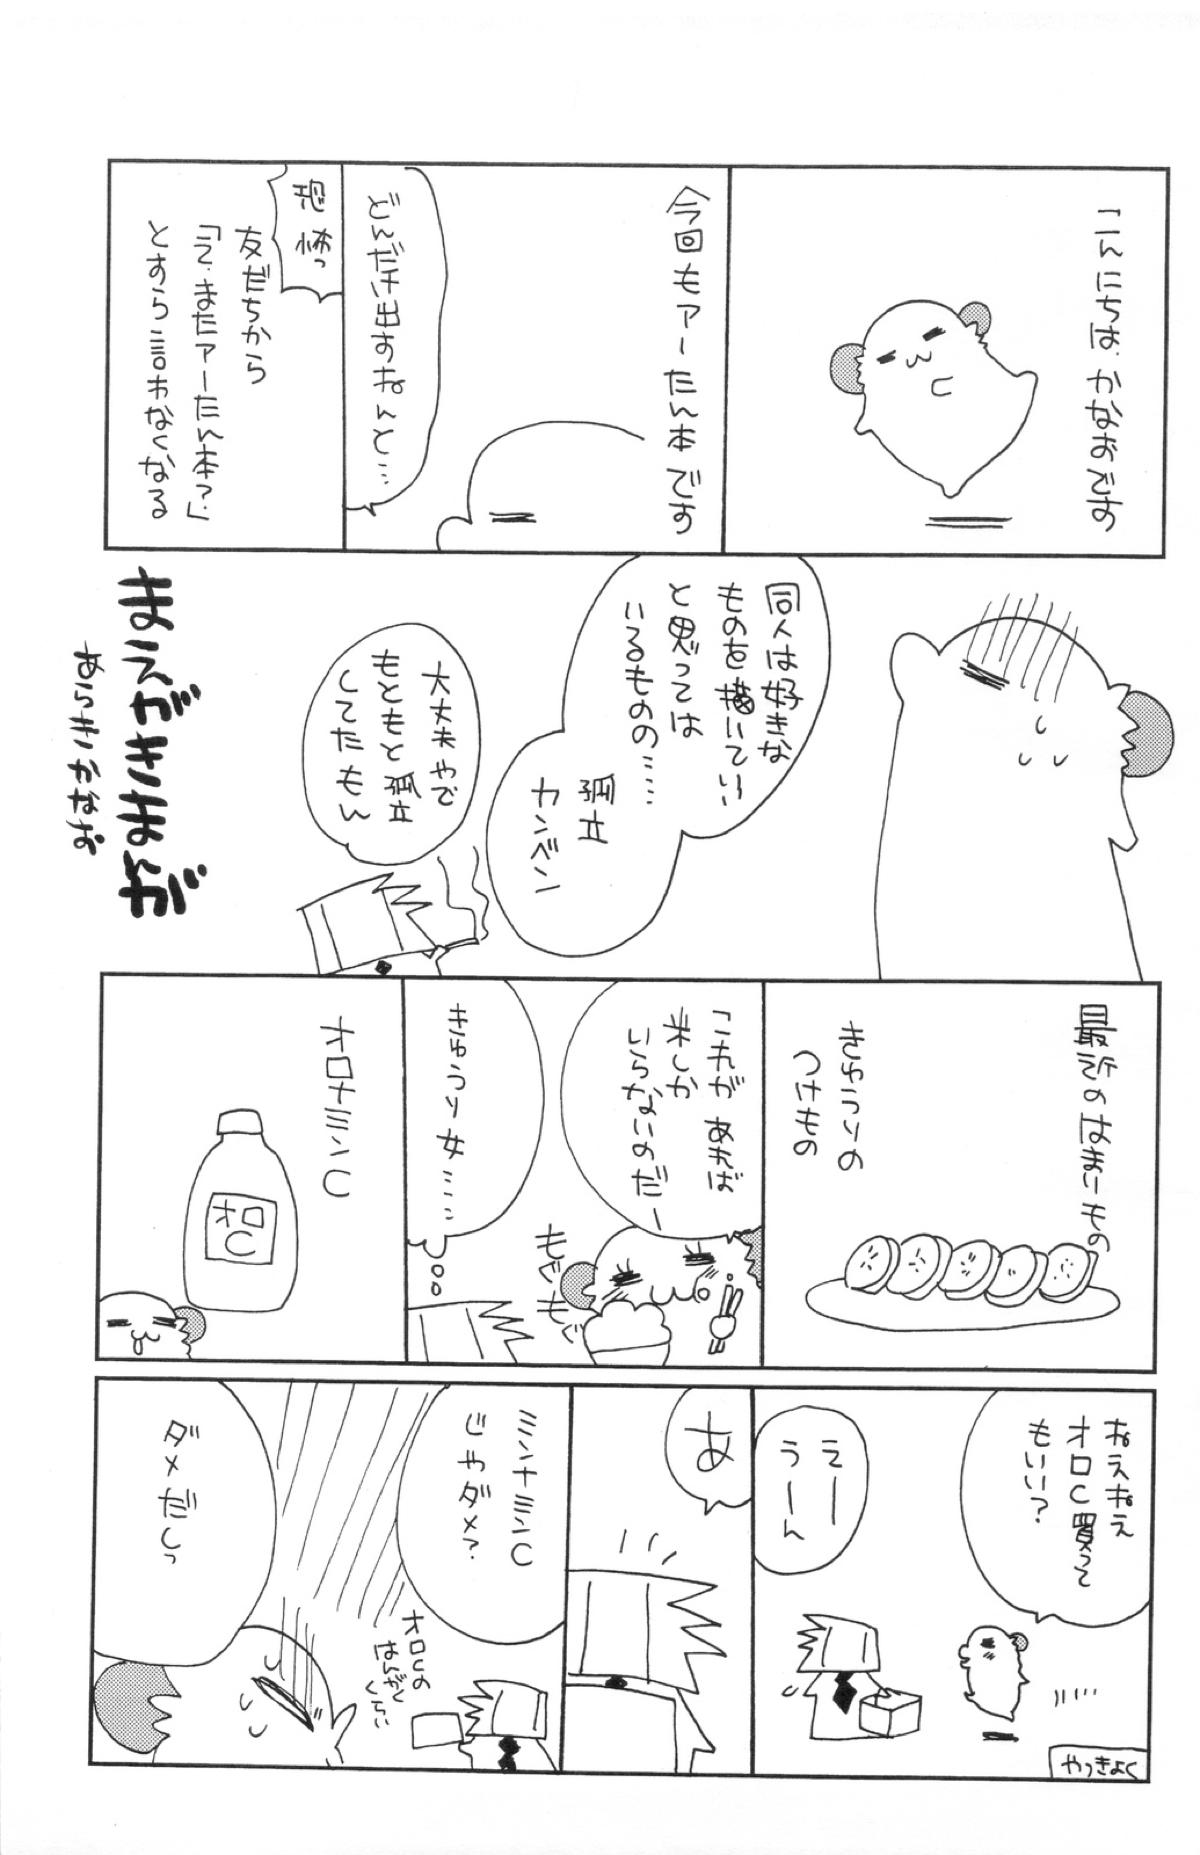 こんにちは、かなおです
今回もアーたん本です
どんだけ出すねんと…
恐怖っ
友だちから
「え、またアーたん本？」
とすら言われなくなる
同人は好きな
ものを描いていい
と思っては
いるものの……
孤立
カンベン
大丈夫やで
もともと孤立
してたもん
まえがきまんが
あらきかなお
最近のはまりもの
きゅうりの
つけもの
「これがあれば
米しか
いらないのだー
もぐもぐ
きゅうり女……
オロナミンC
オロ
C
ねえねえ
オロC買って
もいい？
えー
うーん
やっきょく
あ
ミンナミンC
じゃダメ？
オロCの
はんがく
くらい
ダメだしっ